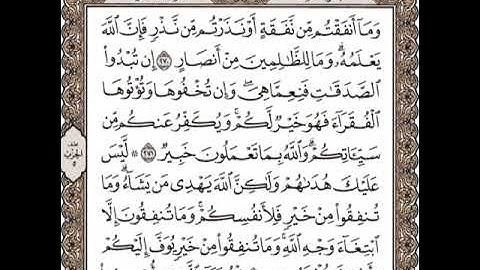 وَمَآ أَنفَقْتُم مِّن نَّفَقَةٍ أَوْ نَذَرْتُم مِّن نَّذْرٍ فَإِنَّ ٱللَّهَ
يَعْلَمُهُۥ ۗ وَمَا لِلظَّـٰلِمِينَ مِنْ أَنصَارٍ ٢٧٠ إِن تُبْدُوا۟
ٱلصَّدَقَـٰتِ فَنِعِمَّا هِىَ ۖ وَإِن تُخْفُوهَا وَتُؤْتُوهَا
ٱلْفُقَرَآءَ فَهُوَ خَيْرٌ لَّكُمْ ۚ وَيُكَفِّرُ عَنكُم مِّن
سَيِّـَٔاتِكُمْ ۗ وَٱللَّهُ بِمَا تَعْمَلُونَ خَبِيرٌ ٢٧١ ۞ لَّيْسَ
عَلَيْكَ هُدَىٰهُمْ وَلَـٰكِنَّ ٱللَّهَ يَهْدِى مَن يَشَآءُ ۗ وَمَا
تُنفِقُوا۟ مِنْ خَيْرٍ فَلِأَنفُسِكُمْ ۚ وَمَا تُنفِقُونَ إِلَّا
ٱبْتِغَآءَ وَجْهِ ٱللَّهِ ۚ وَمَا تُنفِقُوا۟ مِنْ خَيْرٍ يُوَفَّ إِلَيْكُمْ